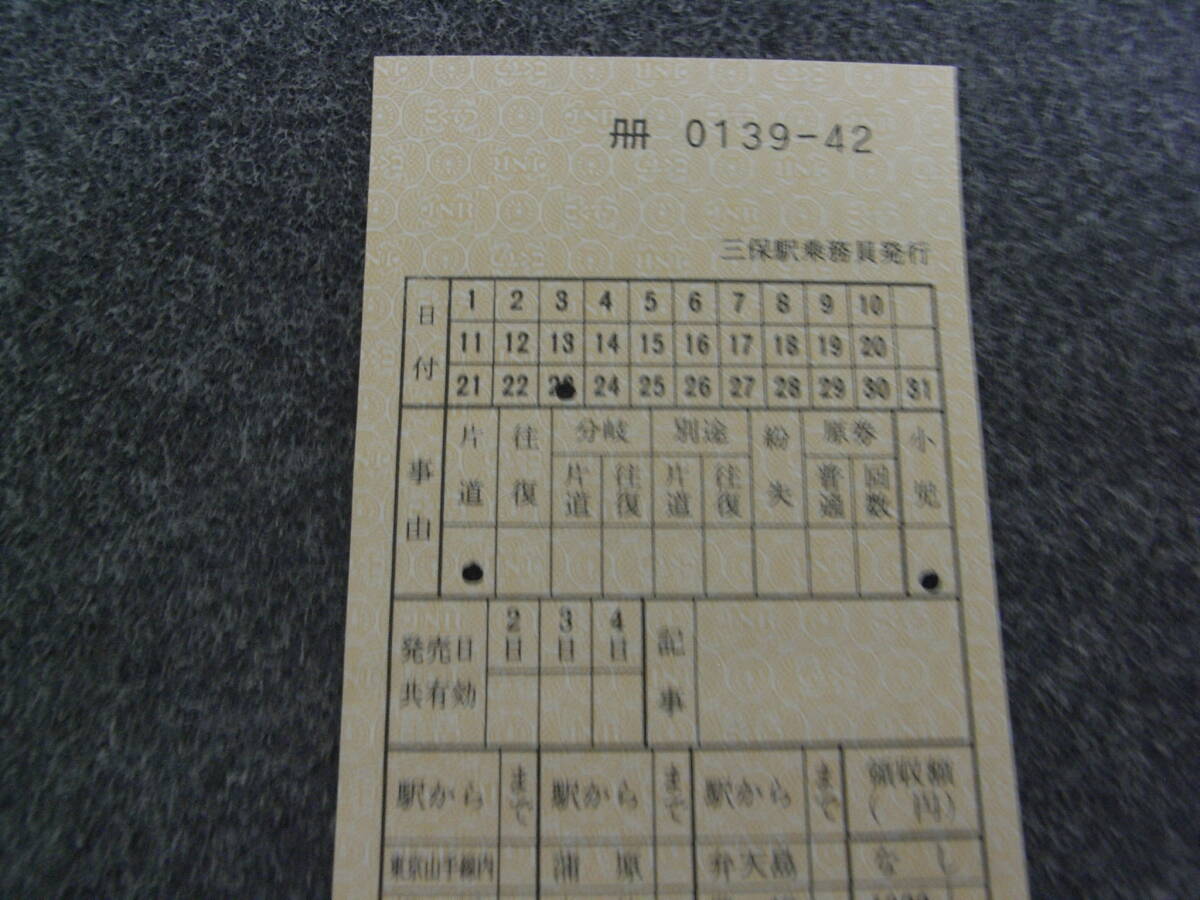 冊 0139-42
三保駅乗務員発行
日付
1 2 3 4 5 6 7 8 9 10
11 12 13 14 15 16 17 18 19 20
21 22 23 24 25 26 27 28 29 30 31
事由
片道 往復 分岐 別途 紛失 原券 小児
片道 往復 片道 往復 普通 回数
発売日共有効
2日 3日 4日 記事
駅から まで 駅から まで 駅から まで 領収額(円)
東京山手線内 蒲原 弁天島 なし